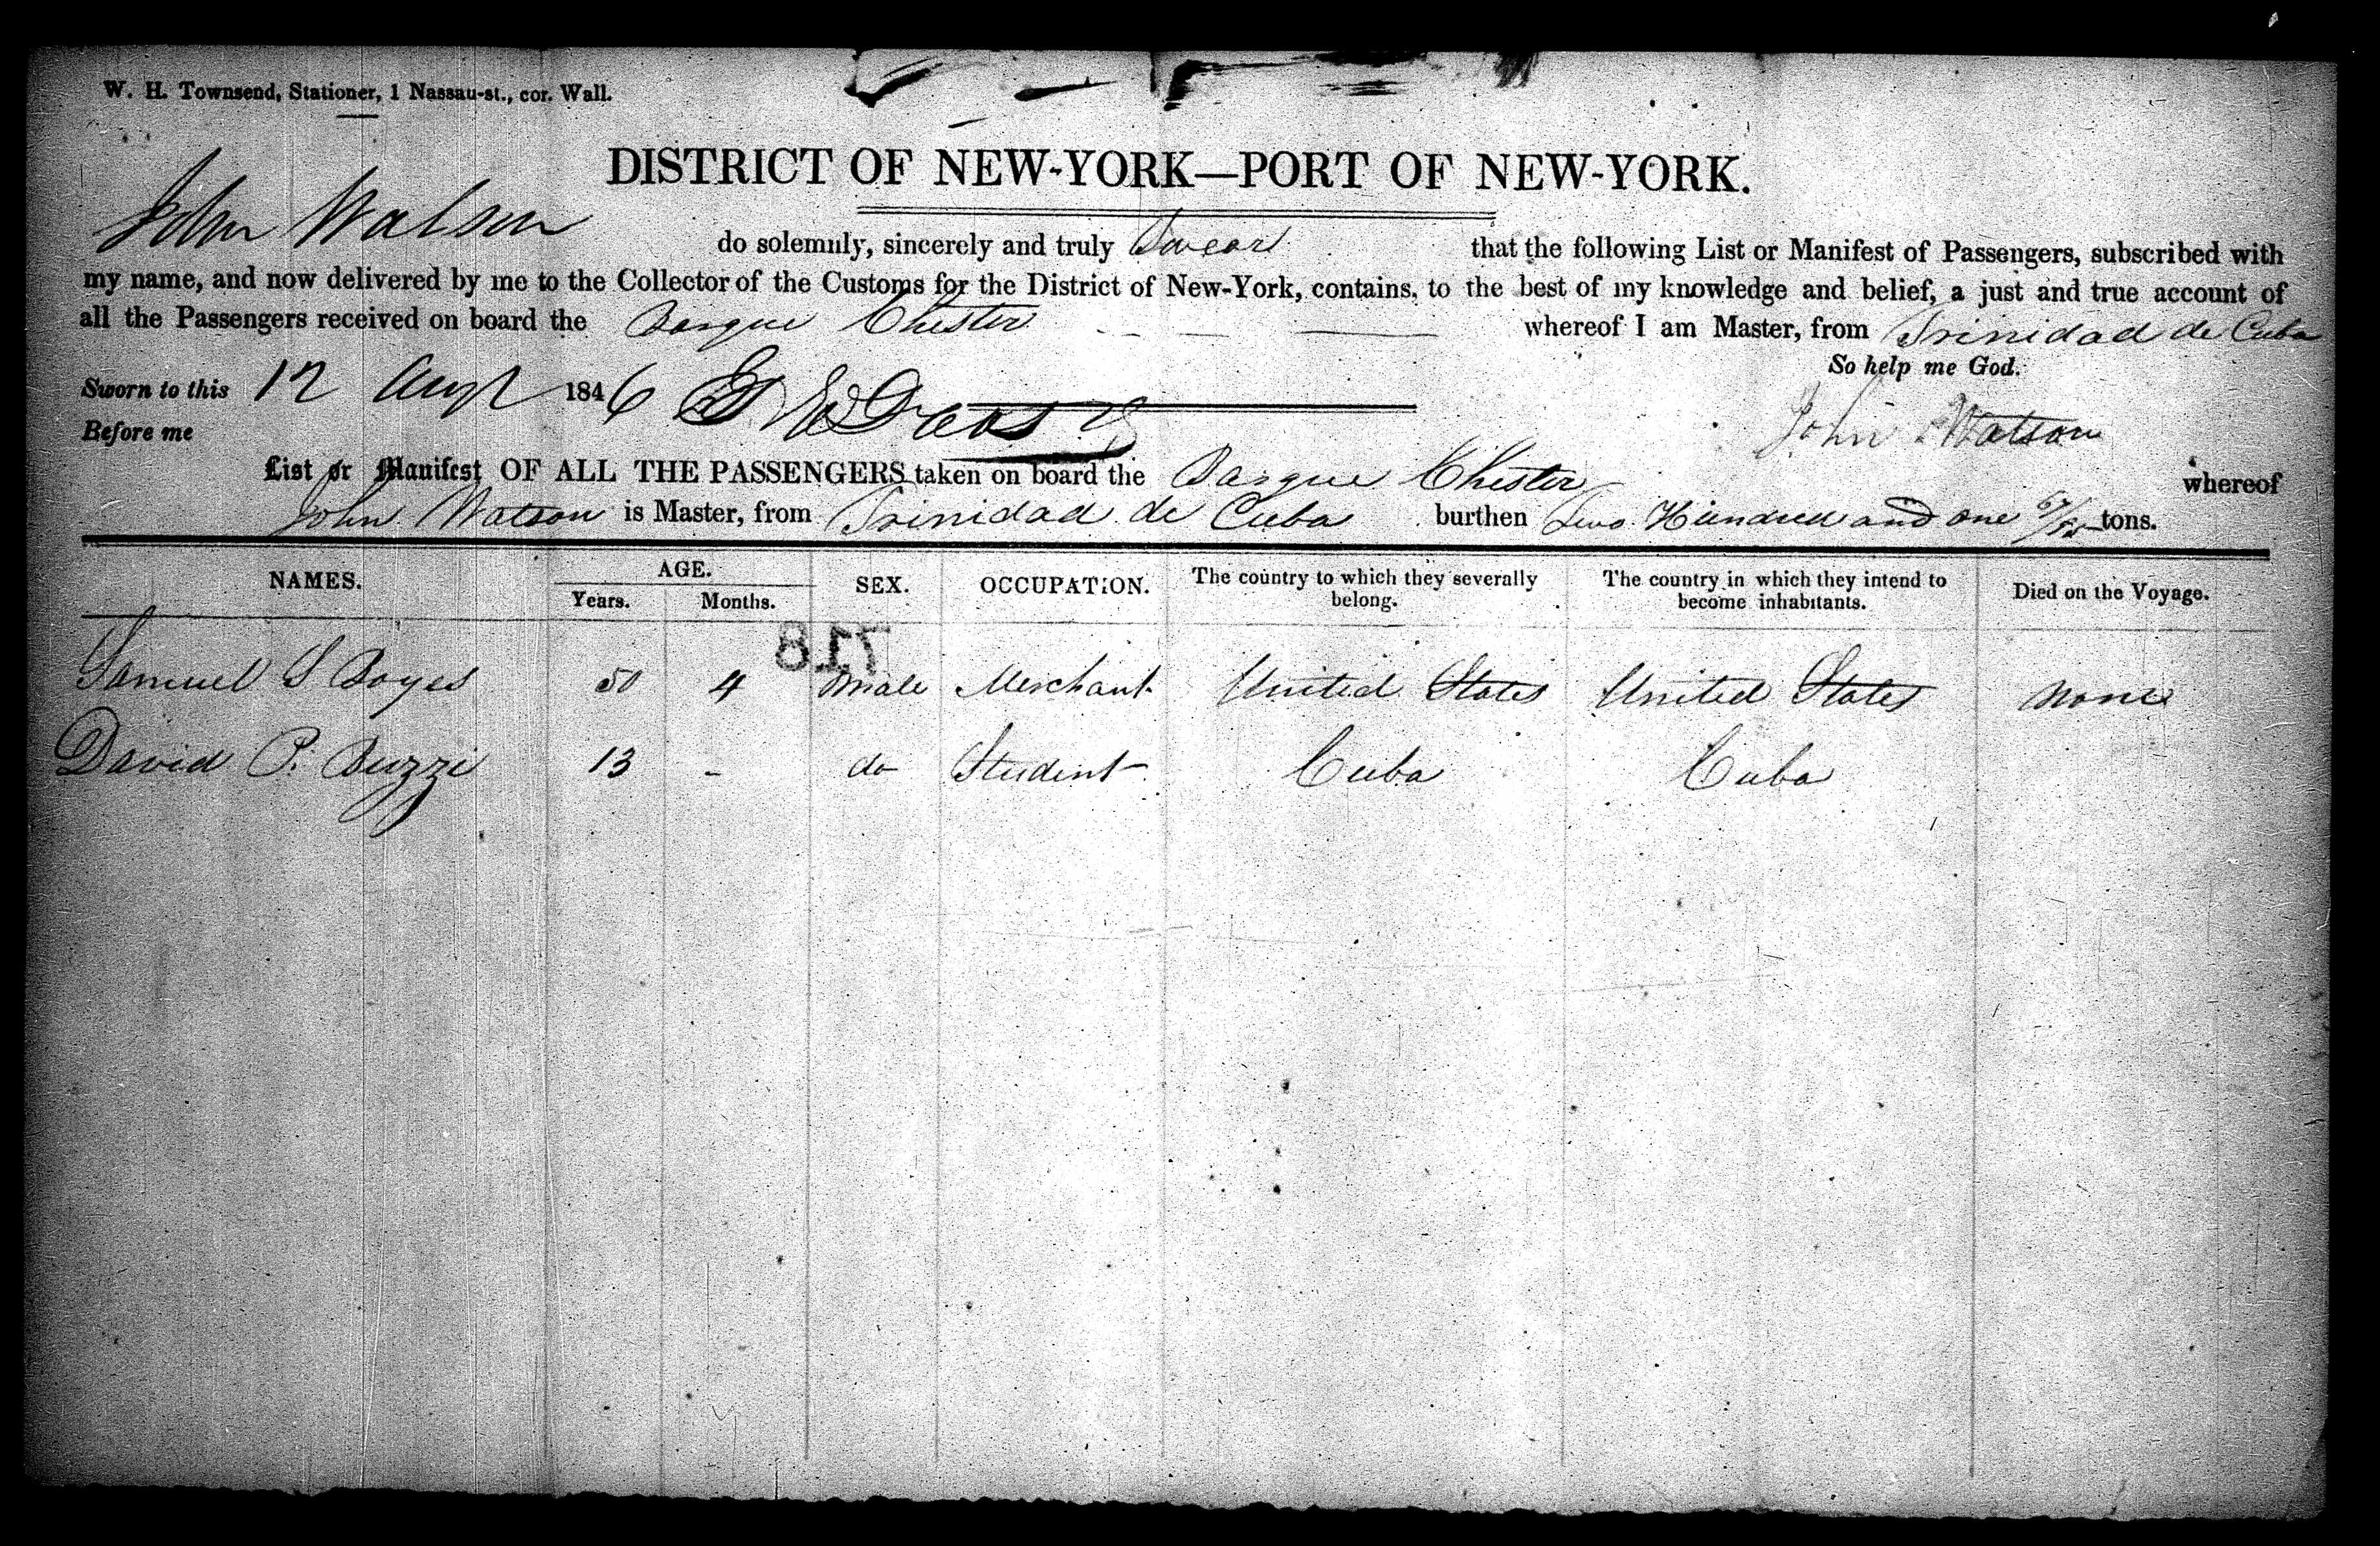 W. H. Townsend, Stationer, 1 Nassau-st., cor. Wall.
DISTRICT OF NEW-YORK—PORT OF NEW-YORK.
John Watson do solemnly, sincerely and truly Swear that the following List or Manifest of Passengers, subscribed with
my name, and now delivered by me to the Collector of the Customs for the District of New-York, contains, to the best of my knowledge and belief, a just and true account of
all the Passengers received on board the Barque Chester whereof I am Master, from Trinidad de Cuba
So help me God.
Sworn to this 12 Augt 1846
Before me John Watson
List or Manifest OF ALL THE PASSENGERS taken on board the Barque Chester whereof
John Watson is Master, from Trinidad de Cuba burthen Two Hundred and one tons.
NAMES. AGE. SEX. OCCUPATION. The country to which they severally belong. The country in which they intend to become inhabitants. Died on the Voyage.
Years. Months.
718
Samuel S Boyes 50 4 male Merchant United States United States None
David P. Buzzi 13 - do Student Cuba Cuba